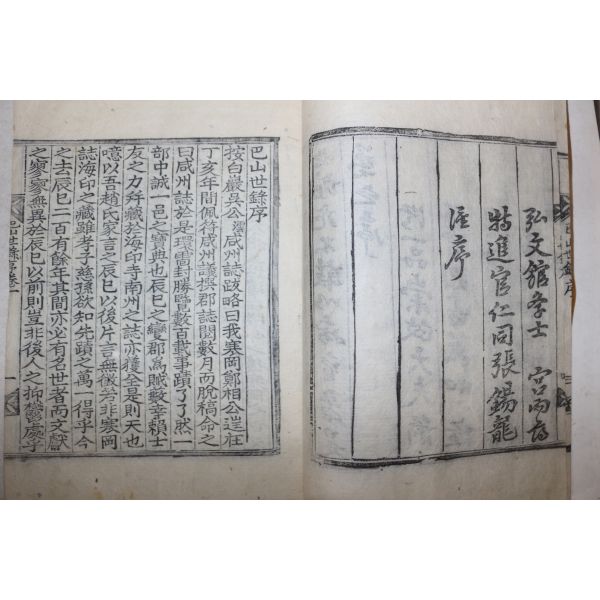 弘文館學士
特進官仁同張錫龍
謹序
巴山世錄序
按白巖吳公澐咸州誌跋略曰我寒岡鄭相公逑在
丁亥年間佩符咸州謹撰郡誌閱數月而脫稿命之
曰咸州誌於是環雷封勝覽數百載事蹟了了然一
部中誠一邑之寶典也辰巳之變郡爲賊藪幸賴士
友之力再藏於海印寺南州之誌亦獲全是則天也
噫以吾趙氏家言之辰巳以後片言無徵苟非寒岡
誌海印之藏雖孝子慈孫欲知先蹟之萬一得乎今
之去辰巳二百有餘年其間亦必有名世者而文獻
之寥寥無異於辰巳以前則豈非後人之抑鬱處乎
巴山世錄序